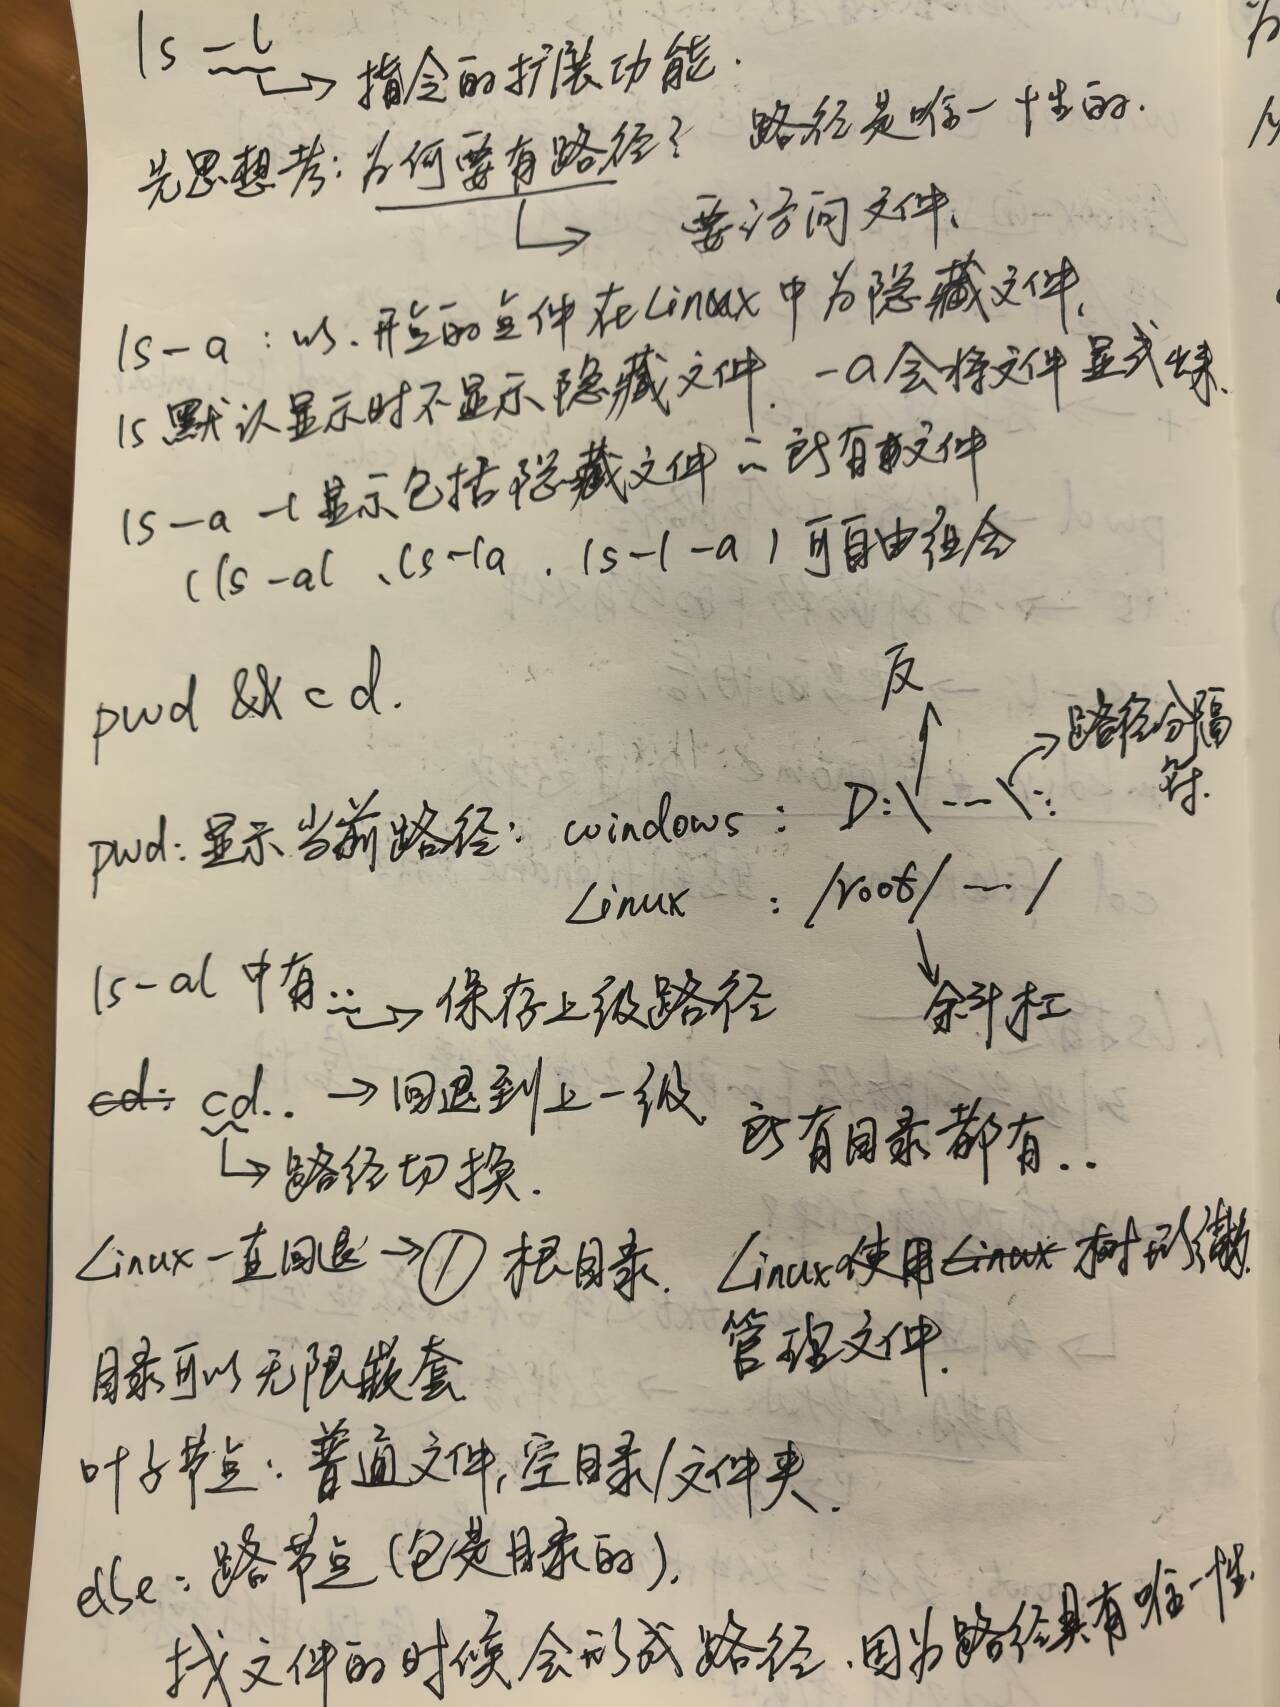 ls -l
→ 指令的扩展功能.
先思想考: 为何要有路径? 路径是唯一性的.
→ 要访问文件.
ls -a : 以.开 的 件在Linux中为隐藏文件,
ls默认显示时不显示隐藏文件. -a会将文件显式出来.
ls -a -l 显示包括隐藏文件 所有 文件
(ls -al 、ls -la . ls -l -a) 可自由组合
反
pwd && cd.
路径分隔符.
pwd: 显示当前路径: windows : D:\ --- \ :
Linux : /root/ --- /
ls -al 中有.. → 保存上级路径
斜杠
cd: cd.. → 回退到上一级. 所有目录都有..
→ 路径切换.
Linux一直回退 → / 根目录. Linux使用Linux树形 管理文件.
目录可以无限嵌套
叶子节点: 普通文件, 空目录/文件夹.
else: 路节点 (包是目录的).
找文件的时候会形成路径.因为路径具有唯一性.